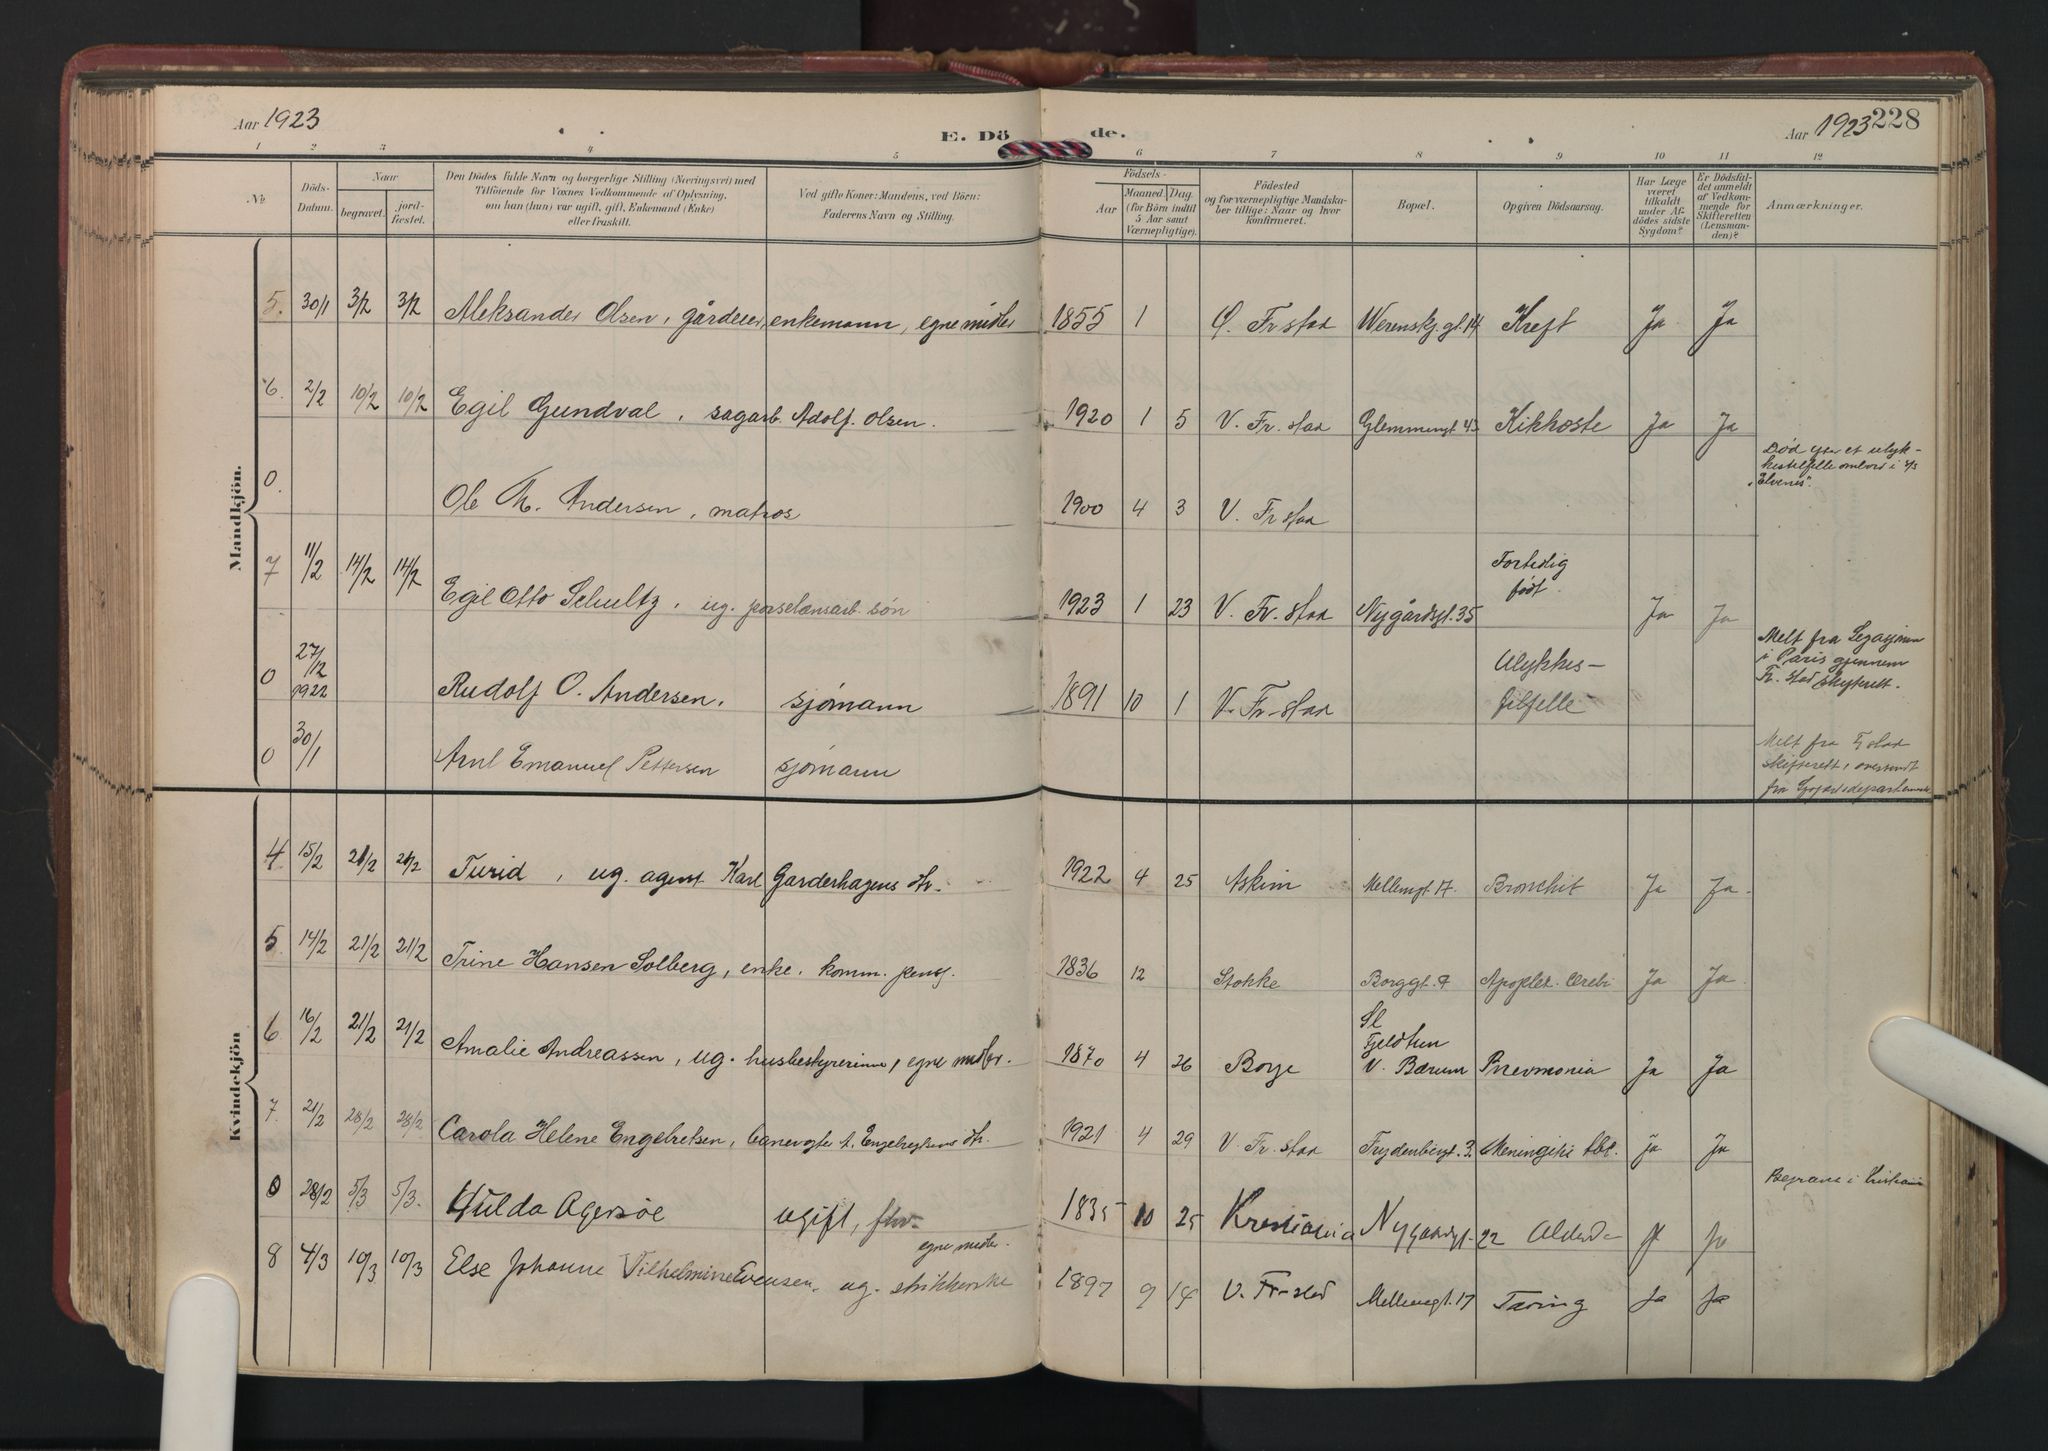 Aar 1923 E. Döde. Aar 1923 228
1 2 3 4 5 6 7 8 9 10 11 12
№ Döds-Datum. Naar begravet. jordfæstet. Den Dödes fulde Navn og borgerlige Stilling (Næringsvei) med Tilföiende for Voxnes Vedkommende af Oplysning, om han (hun) var ugift, gift, Enkemand (Enke) eller fraskilt. Ved gifte Koner: Mandens, ved Börn: Faderens Navn og Stilling. Födsels- Aar Maaned Dag. (for Börn indtil 5 Aar samt Værnepligtige). Födested og for værnepligtige Mandskaber tillige: Naar og hvor konfirmeret. Bopæl. Opgiven Dödsaarsag. Har Læge været tilkaldt under Afdödes sidste Sygdom? Er Dödsfaldet anmeldt af Vedkommende for Skifteretten (Lensmanden)? Anmærkninger.
Mandkjön.
5. 30/1 3/2 3/2 Aleksander Olsen, gårdeier, enkemann, egne midler 1855 1 Ö. Fr.stad Werenskj.gt. 14 Kreft Ja Ja
6. 2/2 10/2 10/2 Egil Gundval, sagarb. Adolf Olsen. 1920 1 5 V. Fr. stad Glemmengt. 43 Kikhoste Ja Ja
0. Ole M. Andersen, matros 1900 4 3 V. Fr stad Död efter et ulykkestilfelle ombord i s/s "Elvenes".
7 11/2 14/2 14/2 Egil Otto Schultz, ug. porselænsarb. sön 1923 1 23 V. Fr. stad Nygårdsgt. 35 Fortidlig født. Ja Ja
0 27/12 1922 Rudolf O. Andersen. sjömann 1891 10 1 V. Fr-stad Ulykkes-tilfelle Melt fra Legasjonen i Paris gjennem Fr. stad skifterett.
0 30/1 Emanuel Pettersen sjömann Melt fra Fr stad skifterett, oversendt fra
Kvindekjön
4 15/2 21/2 21/2 Turid, ug. agent Karl Garderhagens dtr. 1922 4 25 Askim Mellemgt. 17. Bronchit Ja Ja.
5. 14/2 21/2 21/2 Trine Hansen Solberg, enke. komm. pensj. 1836 12 Stokke Borggt. Apoplex. Cerebri Ja Ja
6 16/2 21/2 21/2 Amalie Andreassen, ug. husbestyrerinne, egne midler. 1870 4 26 Borge Fjeldtun V. Bærum Pnevmonia Ja Ja
7. 21/2 28/2 28/2 Carola Helene Engebretsen, banevogter A. Engebretsens dtr. 1921 4 29 V. Fr. stad Frydenbergt. 3. Meningitis tbl. Ja Ja
0 28/2 5/3 5/3. Hulda Agersöe ugift, egne midler. 1835 10 25 Kristiania Nygaardsgt. 22 Alderd- Ja Ja Begravet i Kristiania
8 4/3 10/3 10/3 Else Johanne Vilhelmine Evensen, ug. strikkerske 1897 9 14 V. Fr-stad Mellemgt. 17 Tæring Ja Ja